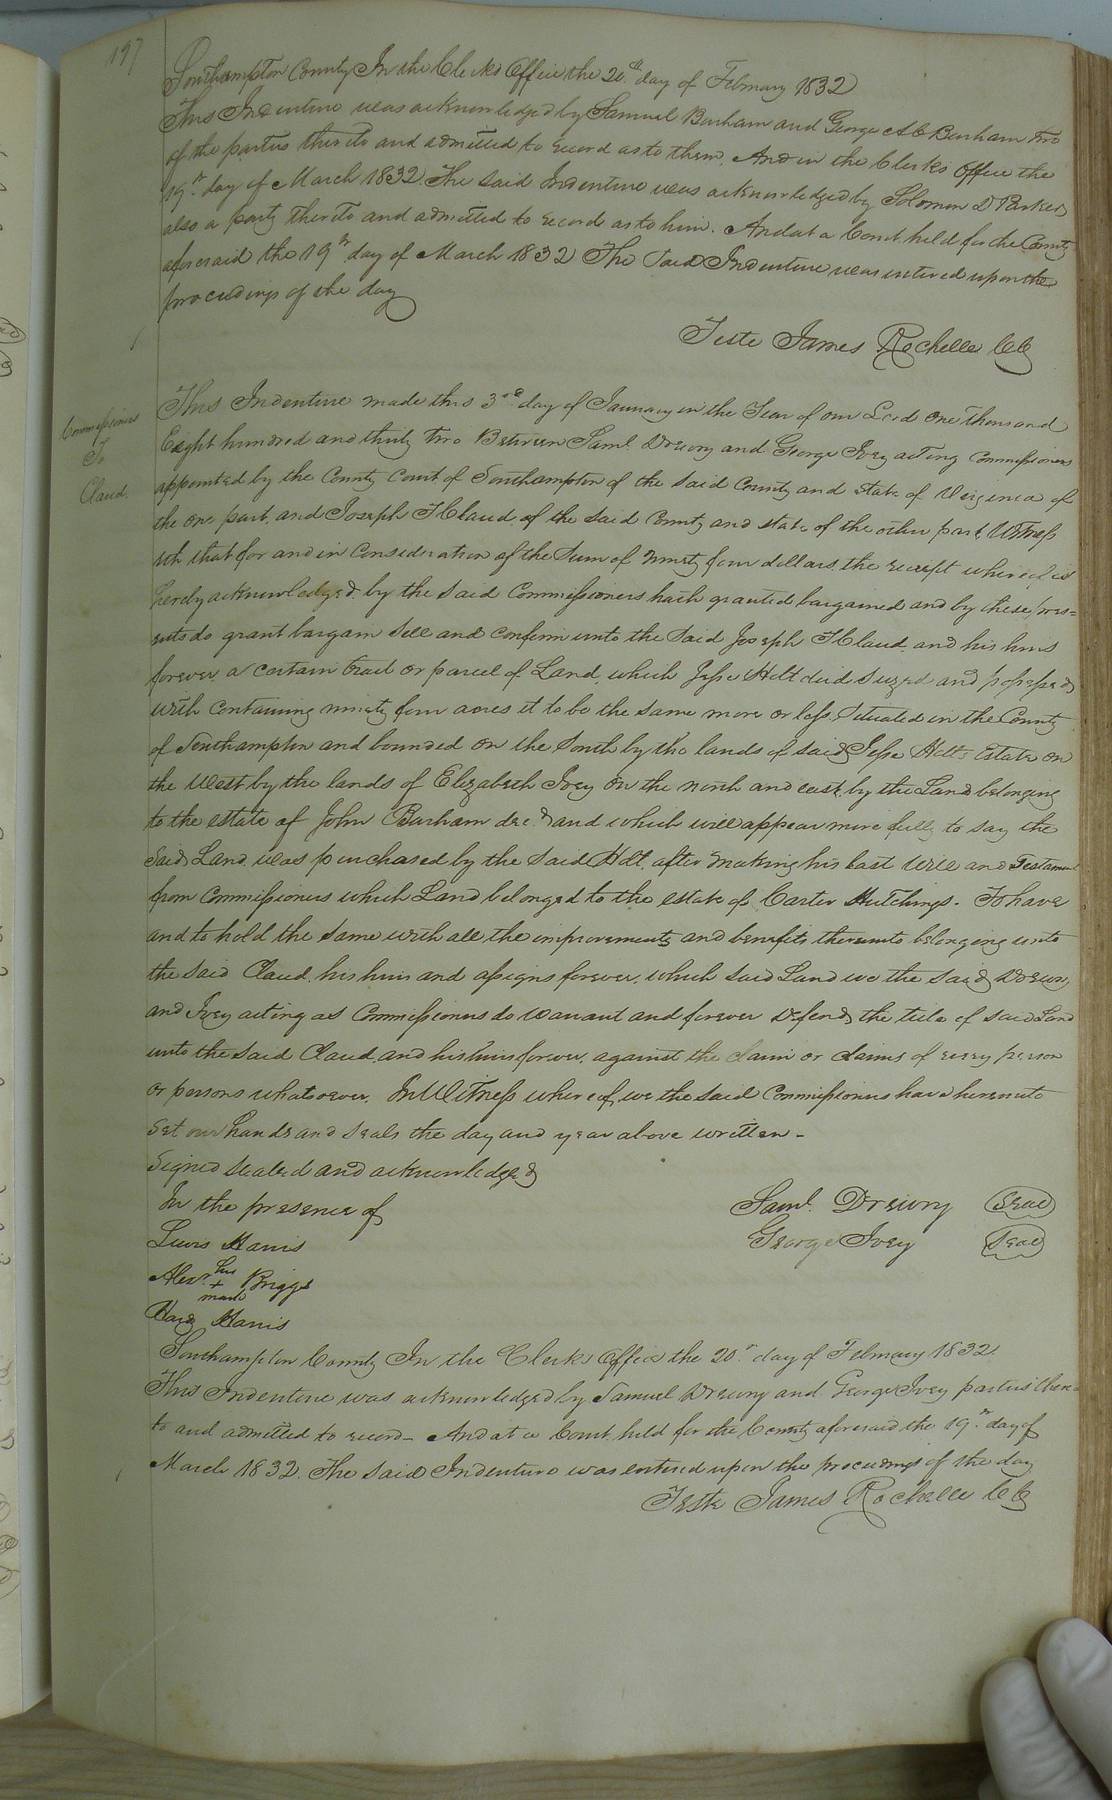 197
Southampton County In the Clerks Office the 20th day of February 1832
This Indenture was acknowledged by Samuel Barham and George A C Barham two
of the parties thereto and admitted to record as to them. And in the Clerks office the
19th day of March 1832 The said Indenture was acknowledged by Solomon D Parker
also a party thereto and admitted to record as to him. And at a Court held for the County
aforesaid the 19th day of March 1832 The Said Indenture was entered upon the
proceedings of the day
Teste James Rochelle CC
Commissioners
To
Claud.
This Indenture made this 3rd day of January in the Year of our Lord One thousand
Eight hundred and thirty two Between Saml. Drewry and George Ivey acting Commissioners
appointed by the County Court of Southampton of the said County and state of Virginia of
the one part, and Joseph H Claud of the said County and state of the other part, Witness
eth that for and in Consideration of the Sum of ninety four dollars the receipt whereof is
hereby acknowledged by the said Commissioners hath granted bargained and by these pres=
ents do grant bargain sell and confirm unto the said Joseph H Claud and his heirs
forever a certain tract or parcel of Land which Jesse Holt died seized and possessed
with containing ninety four acres it to be the same more or less, Situated in the County
of Southampton and bounded on the South by the lands of said Jesse Holts Estate on
the West by the lands of Elizabeth Ivey On the north and east by the Land belonging
to the estate of John Barham decd and which will appear more fully to say the
Said Land was purchased by the said Holt after making his last Will and Testament
from Commissioners which Land belonged to the estate of Carter Hutchings. To have
and to hold the same with all the improvements and benefits thereunto belonging unto
the said Claud his heirs and assigns forever, which said Land we the said Drewry
and Ivey acting as Commissioners do warrant and forever Defend the title of said Land
unto the said Claud and his heirs forever against the claim or claims of every person
or persons whatsoever. In Witness whereof we the said Commissioners have hereunto
set our hands and seals the day and year above written -
Signed sealed and acknowledged
In the presence of
Saml. Drewry Seal
Lewis Harris
George Ivey Seal
Alexr his + mark Briggs
Hardy Harris
Southampton County In the Clerks Office the 20th day of February 1832
This Indenture was acknowledged by Samuel Drewry and George Ivey parties there
to and admitted to record - And at a Court held for the County aforesaid the 19th day of
March 1832. The said Indenture was entered upon the proceedings of the day
Teste James Rochelle CC